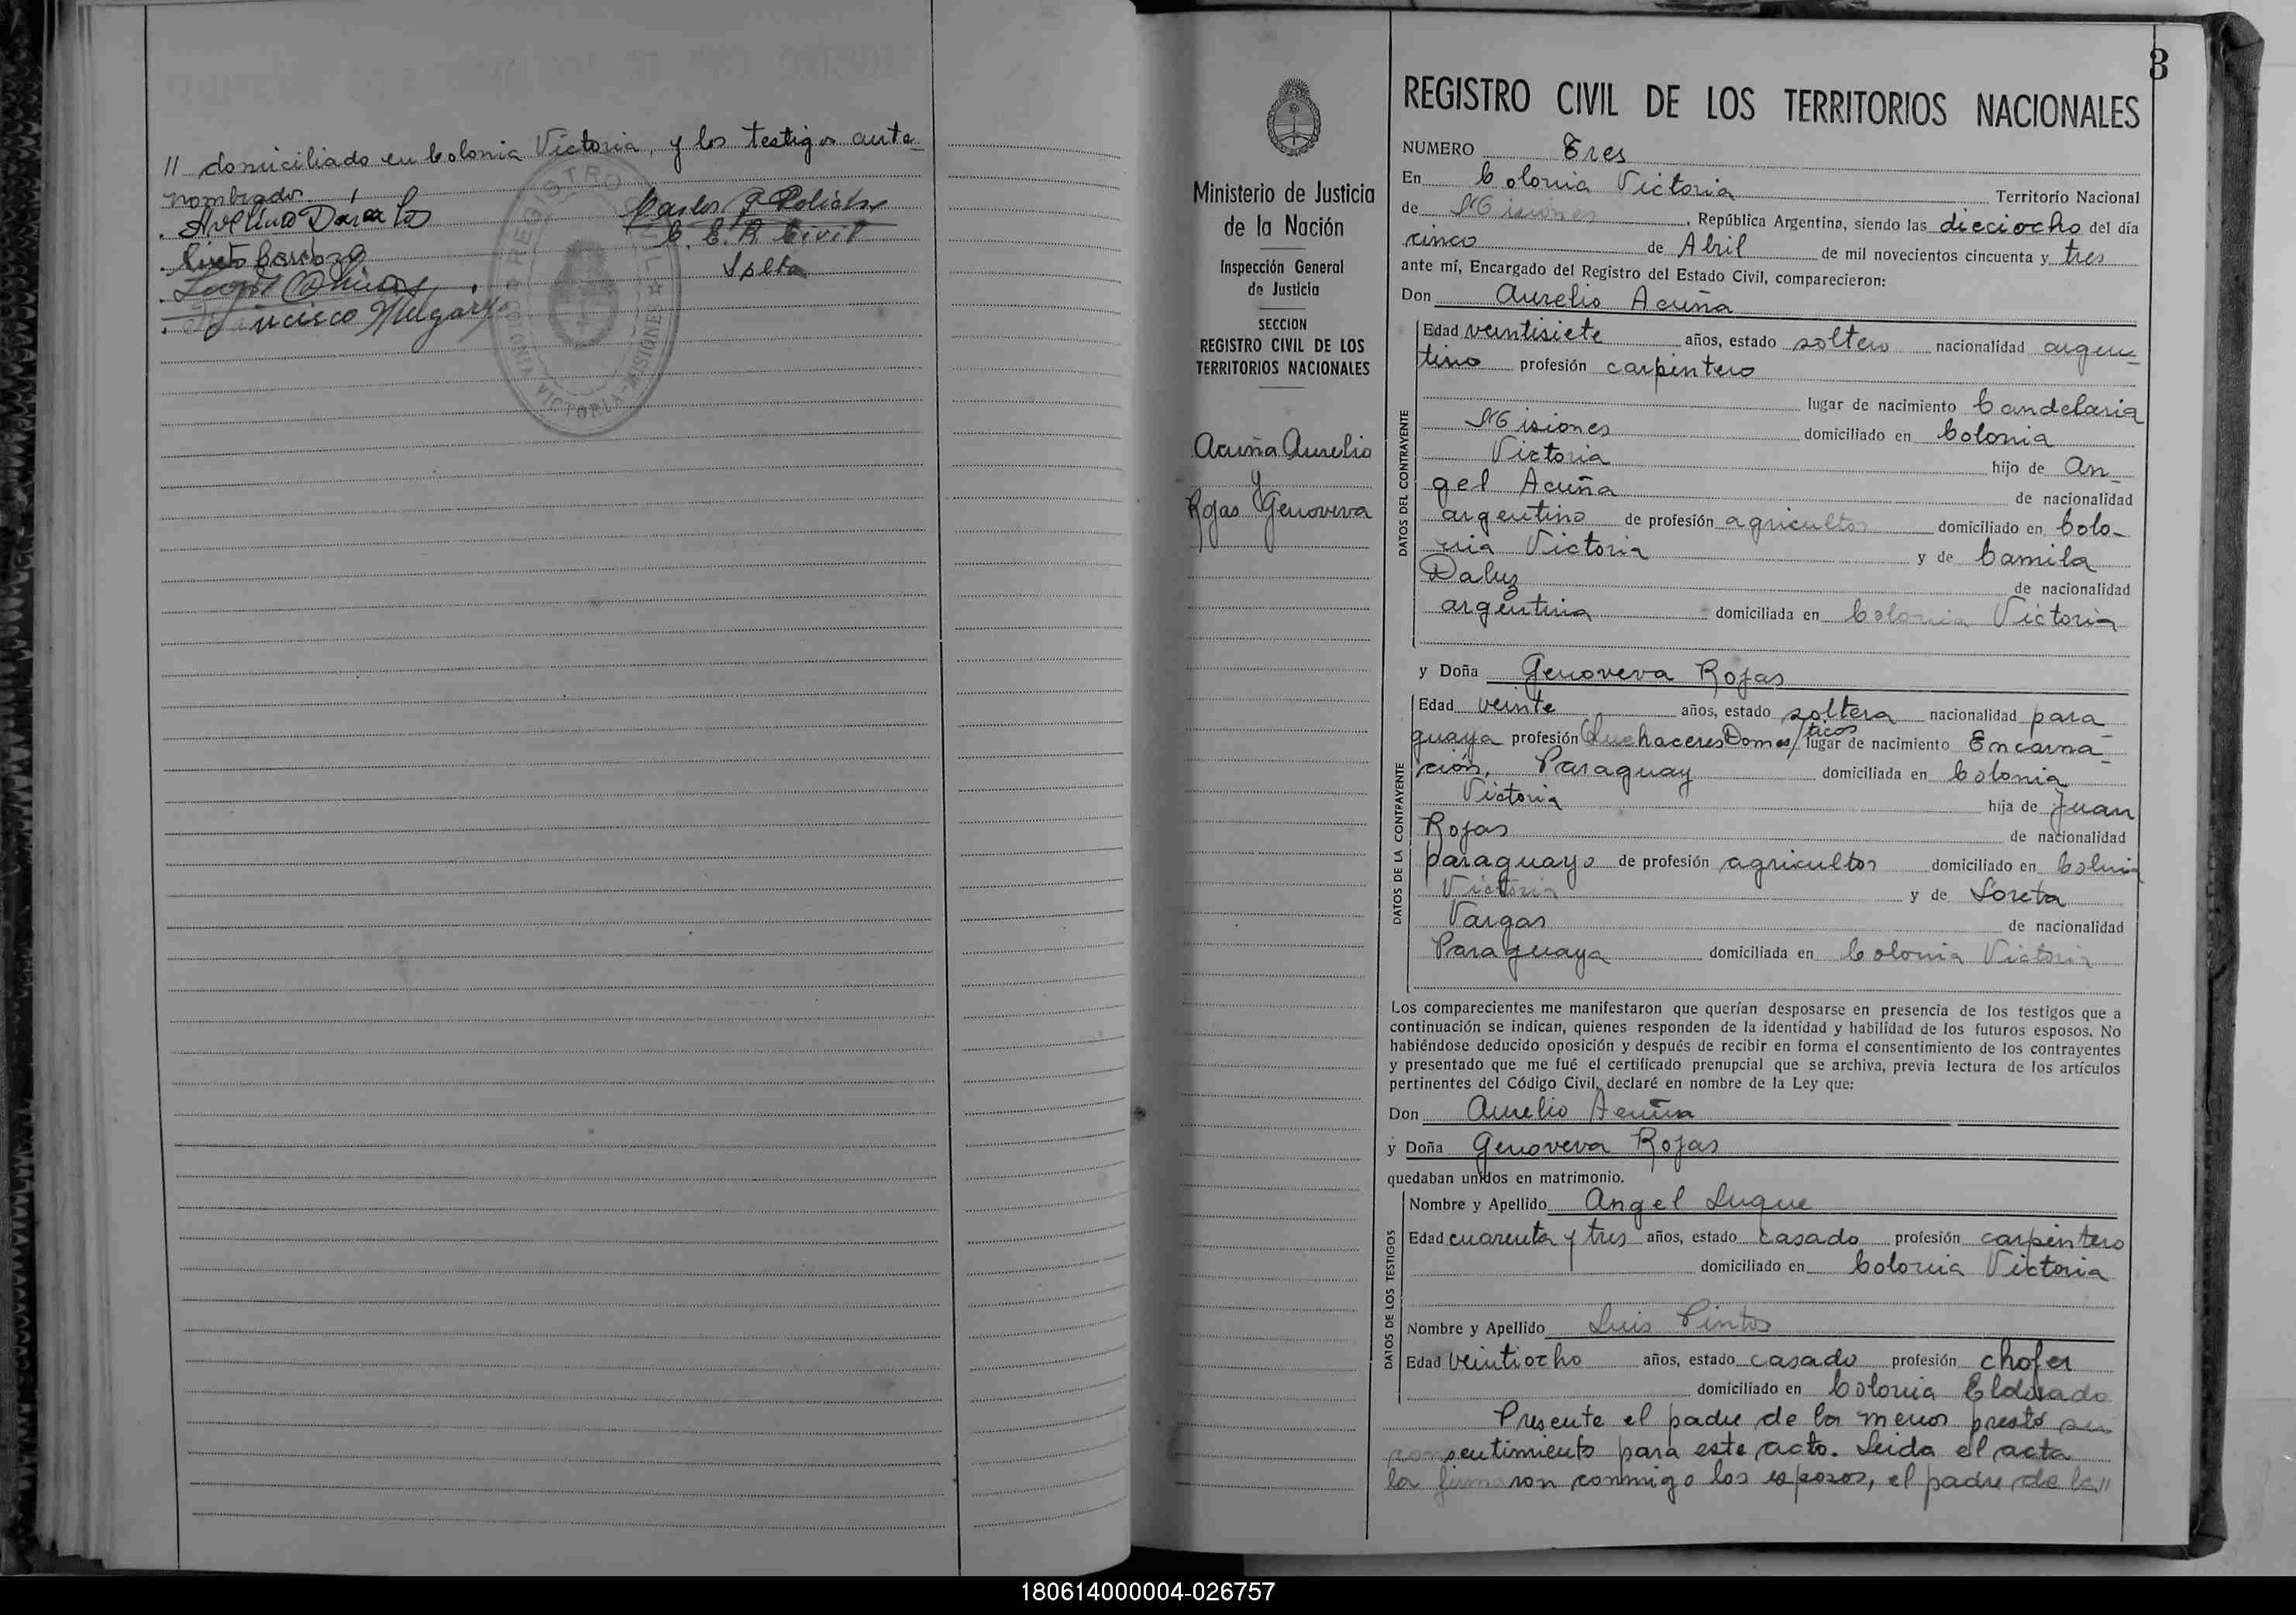 // domiciliado en Colonia Victoria, y los testigos ante-
nombrados.
Francisco Melgar
C. E. R. Civil
REGISTRO CIVIL
COLONIA VICTORIA - MISIONES
3
REGISTRO CIVIL DE LOS TERRITORIOS NACIONALES
Ministerio de Justicia
de la Nación
Inspección General
de Justicia
SECCION
REGISTRO CIVIL DE LOS
TERRITORIOS NACIONALES
Acuña Aurelio
y
Rojas Genoveva
NUMERO Tres
En Colonia Victoria Territorio Nacional
de Misiones, República Argentina, siendo las dieciocho del día
cinco de Abril de mil novecientos cincuenta y tres
ante mí, Encargado del Registro del Estado Civil, comparecieron:
Don Aurelio Acuña
DATOS DEL CONTRAYENTE
Edad veintisiete años, estado soltero nacionalidad argen-
tino profesión carpintero
lugar de nacimiento Candelaria
Misiones domiciliado en Colonia
Victoria hijo de An-
gel Acuña de nacionalidad
argentino de profesión agricultor domiciliado en Colo-
nia Victoria y de Camila
Daluz de nacionalidad
argentina domiciliada en Colonia Victoria
y Doña Genoveva Rojas
DATOS DE LA CONTRAYENTE
Edad veinte años, estado soltera nacionalidad para-
guaya profesión Quehaceres Domes/ticos lugar de nacimiento Encarna-
ción, Paraguay domiciliada en Colonia
Victoria hija de Juan
Rojas de nacionalidad
paraguayo de profesión agricultor domiciliado en Colonia
Victoria y de Loreta
Vargas de nacionalidad
Paraguaya domiciliada en Colonia Victoria
Los comparecientes me manifestaron que querían desposarse en presencia de los testigos que a
continuación se indican, quienes responden de la identidad y habilidad de los futuros esposos. No
habiéndose deducido oposición y después de recibir en forma el consentimiento de los contrayentes
y presentado que me fué el certificado prenupcial que se archiva, previa lectura de los artículos
pertinentes del Código Civil, declaré en nombre de la Ley que:
Don Aurelio Acuña
y Doña Genoveva Rojas
quedaban unidos en matrimonio.
DATOS DE LOS TESTIGOS
Nombre y Apellido Angel Luque
Edad cuarenta y tres años, estado casado profesión carpintero
domiciliado en Colonia Victoria
Nombre y Apellido Luis Pintos
Edad veintiocho años, estado casado profesión chofer
domiciliado en Colonia Eldorado
Presente el padre de la menor prestó su
consentimiento para este acto. Leida el acta
la firmaron conmigo los esposos, el padre de la//
180614000004-026757